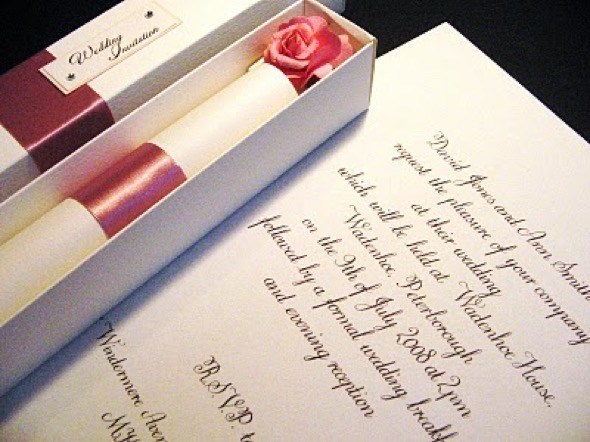 Wedding
Invitation
David Jones and Ann Smith
request the pleasure of your company
at their wedding
which will be held at Wadenhoe House,
Wadenhoe, Peterborough
on the 9th of July 2008 at 2pm
followed by a formal wedding breakf
and evening reception
R.S.V.P. t
Windermere Aven